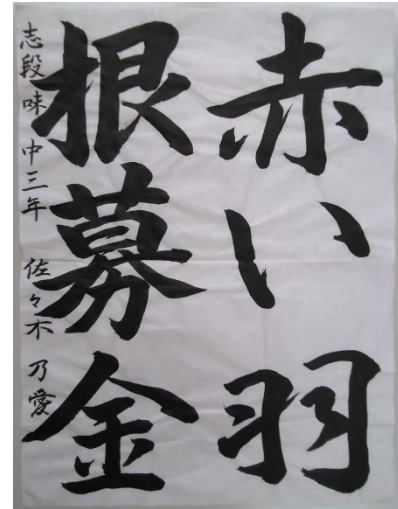 赤い羽
根募金
志段味中三年 佐々木乃愛